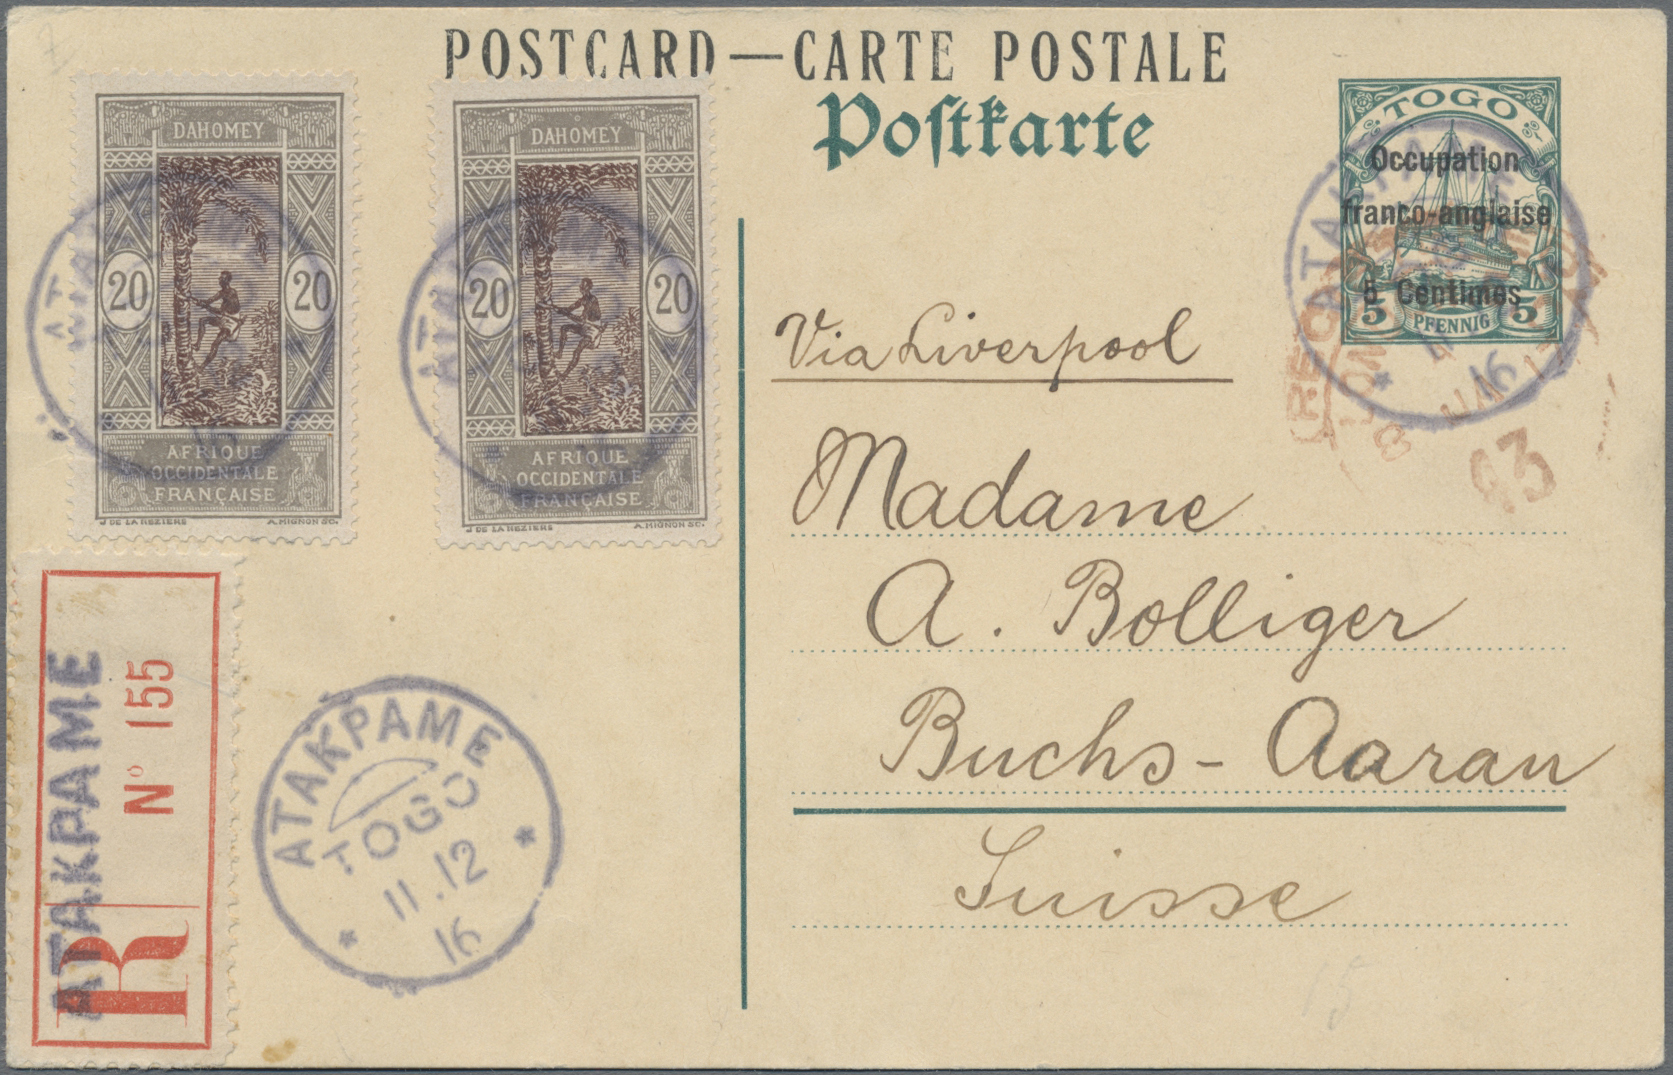 POSTCARD—CARTE POSTALE
Postkarte
DAHOMEY
20 20
AFRIQUE
OCCIDENTALE
FRANÇAISE
J DE LA NEZIERE A. MIGNON SC.
DAHOMEY
20 20
AFRIQUE
OCCIDENTALE
FRANÇAISE
J DE LA NEZIERE A. MIGNON SC.
TOGO
Occupation
franco-anglaise
5 Centimes
5 PFENNIG 5
ATAKPAME
16
Via Liverpool
Madame
A. Bolliger
Buchs-Aarau
Suisse
43
ATAKPAME
No 155
R
ATAKPAME
TOGO
11.12
16
15